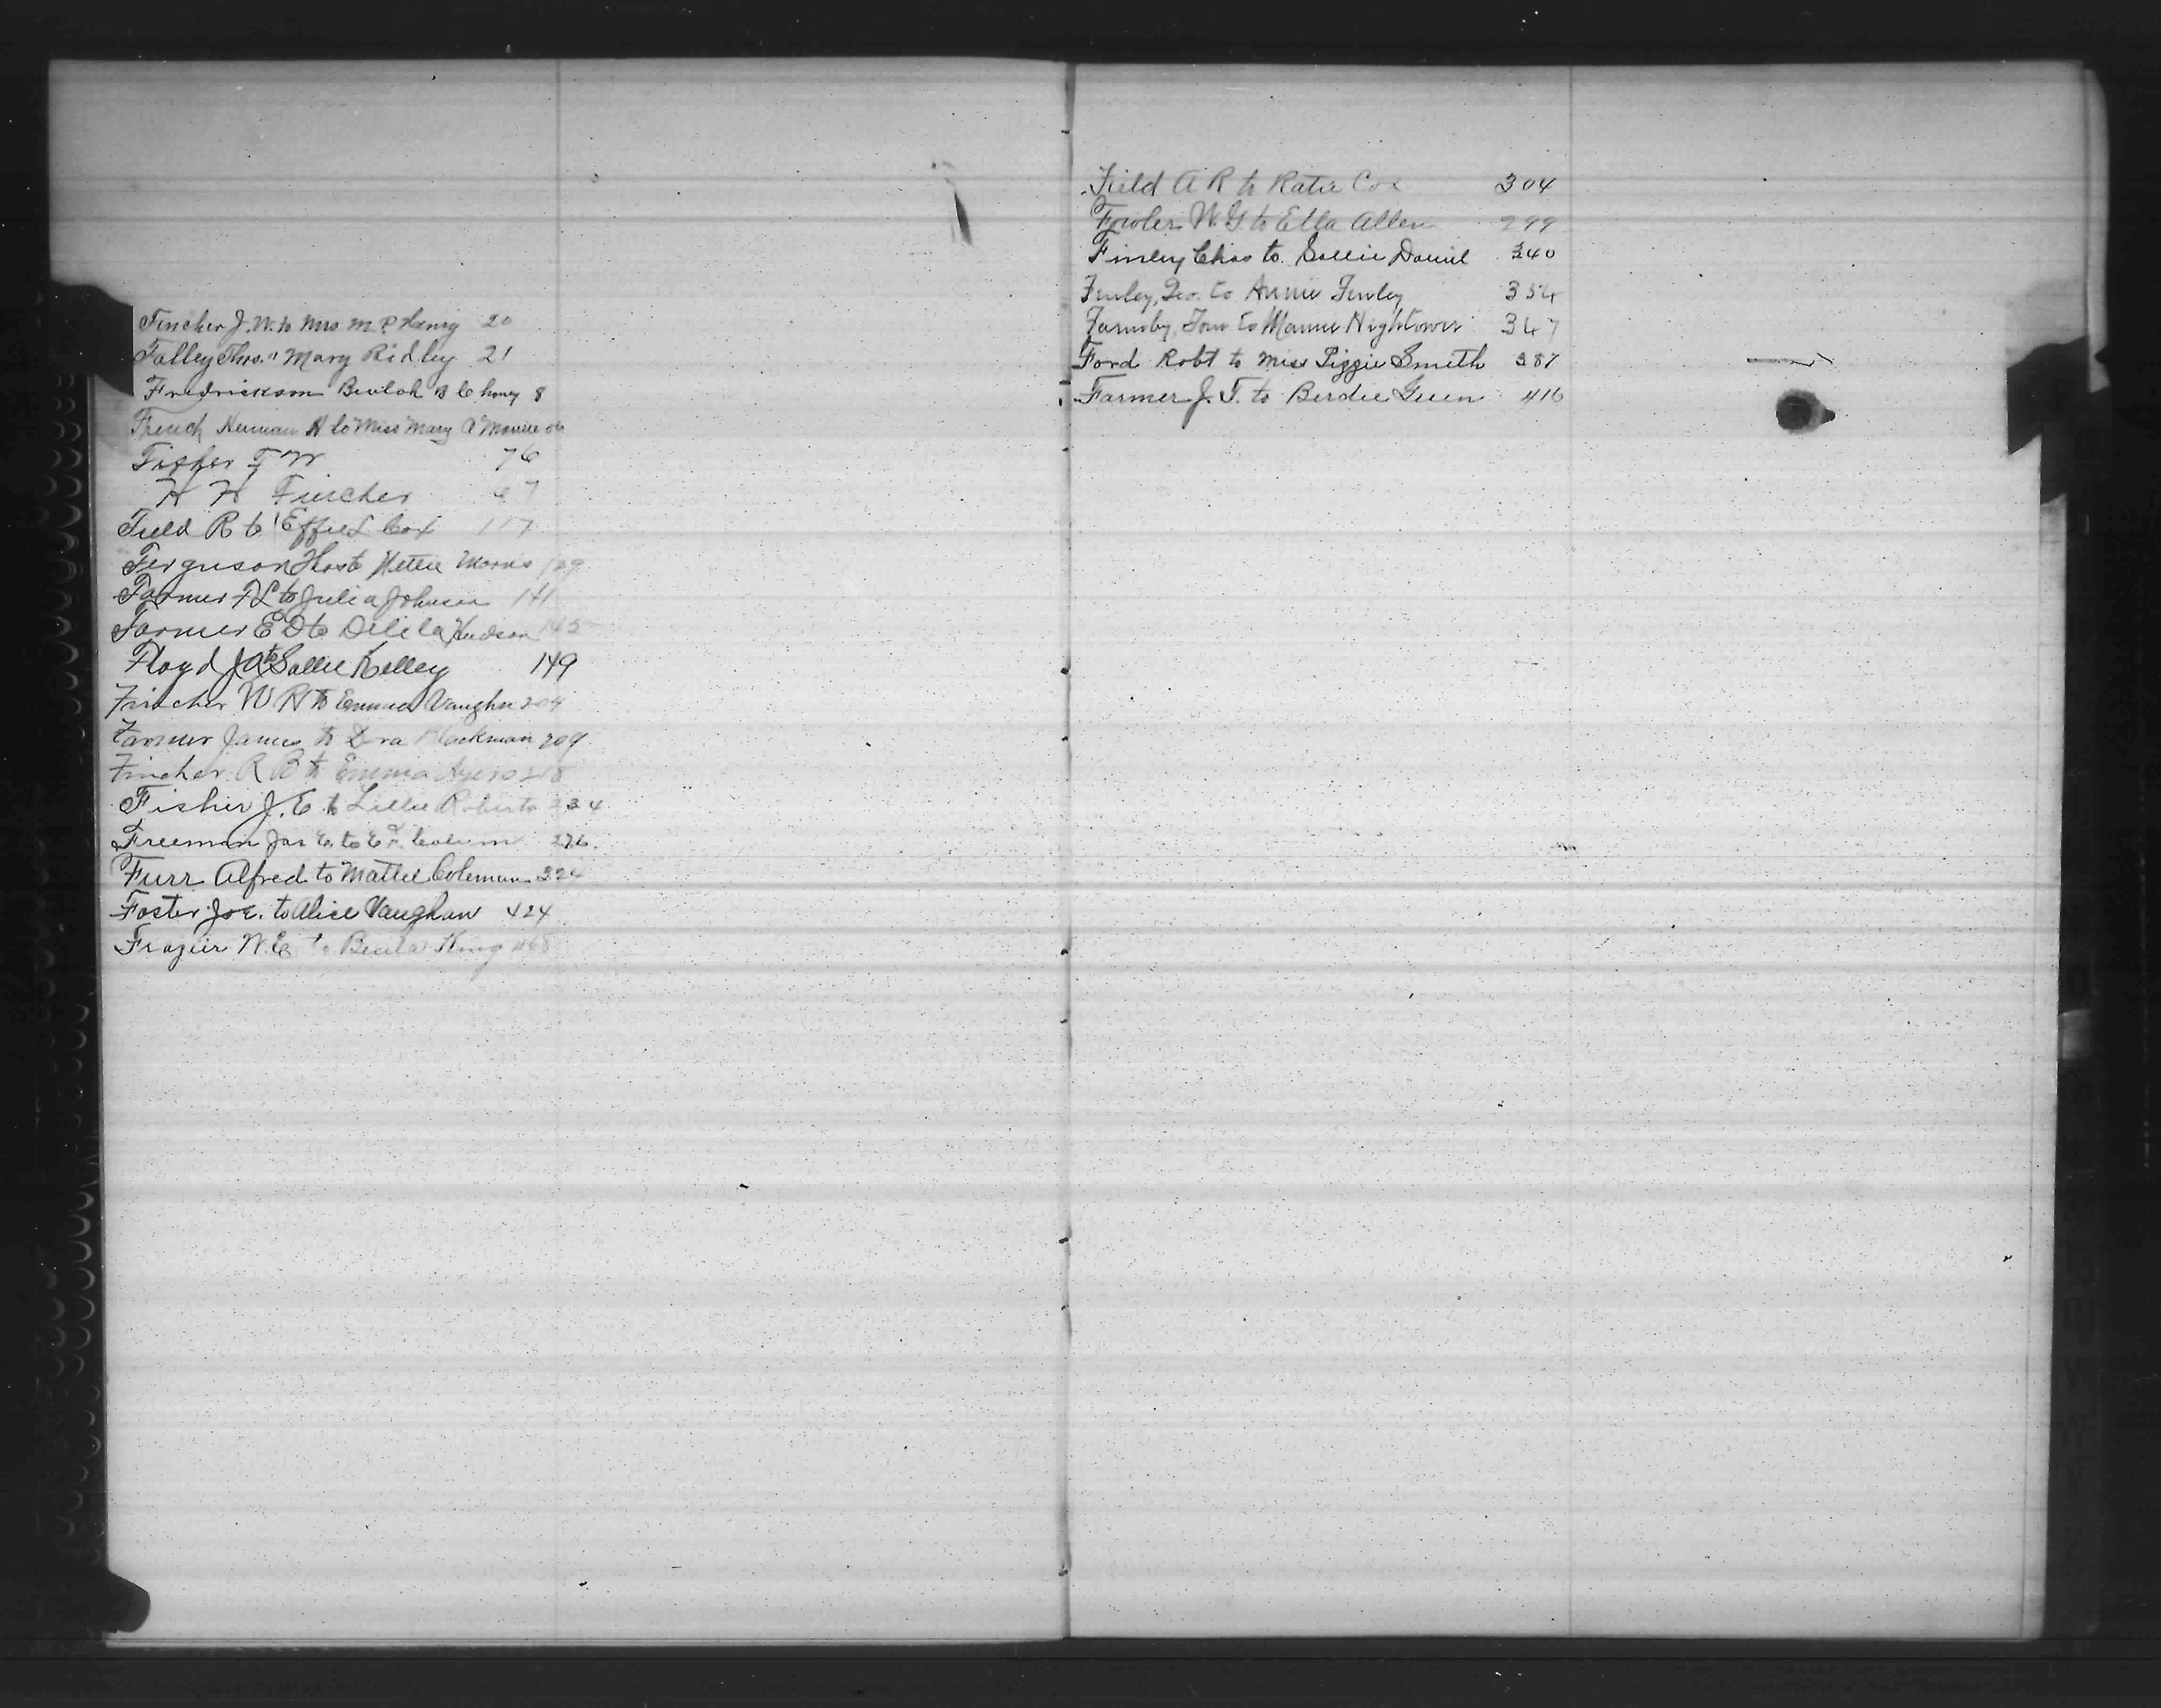 Fincher J. W. to Mrs M. P. Haney 20
Talley Thos. " Mary Ridley 21
Fredrickson Beulah B Choney 8
French Herman H to Miss Mary A
Fisher F W 76
H H Fincher 67
Field R to Effie L Cox 117
Ferguson Thos to Hettie Morris 129
Farmer F L to Julia Johnson 141
Farmer E D to Delila Hudson 145
Floyd J A to Sallie Kelley 149
Fincher W R to Emma Vaughn 204
Farmer James to Dra Blackman 209
Fincher R B to Emma Ayers 218
Fisher J. E to Lillie Roberts 234
Freeman Jas E. to E F. 276.
Furr Alfred to Mattie Coleman 324
Foster Joe. to Alice Vaughan 424
Frazier W. E to Beula King 468
Field A R to Katie Cox 304
Fowler W. G. to Etta Allen 299
Finley Chas to. Sallie Daniel 340
Finley, Geo. to Annie Finley 354
Farmby, Tom to Mamie Hightower 347
Ford Robt to Miss Lizzie Smith 387
Farmer J. T. to Berdie Green 416